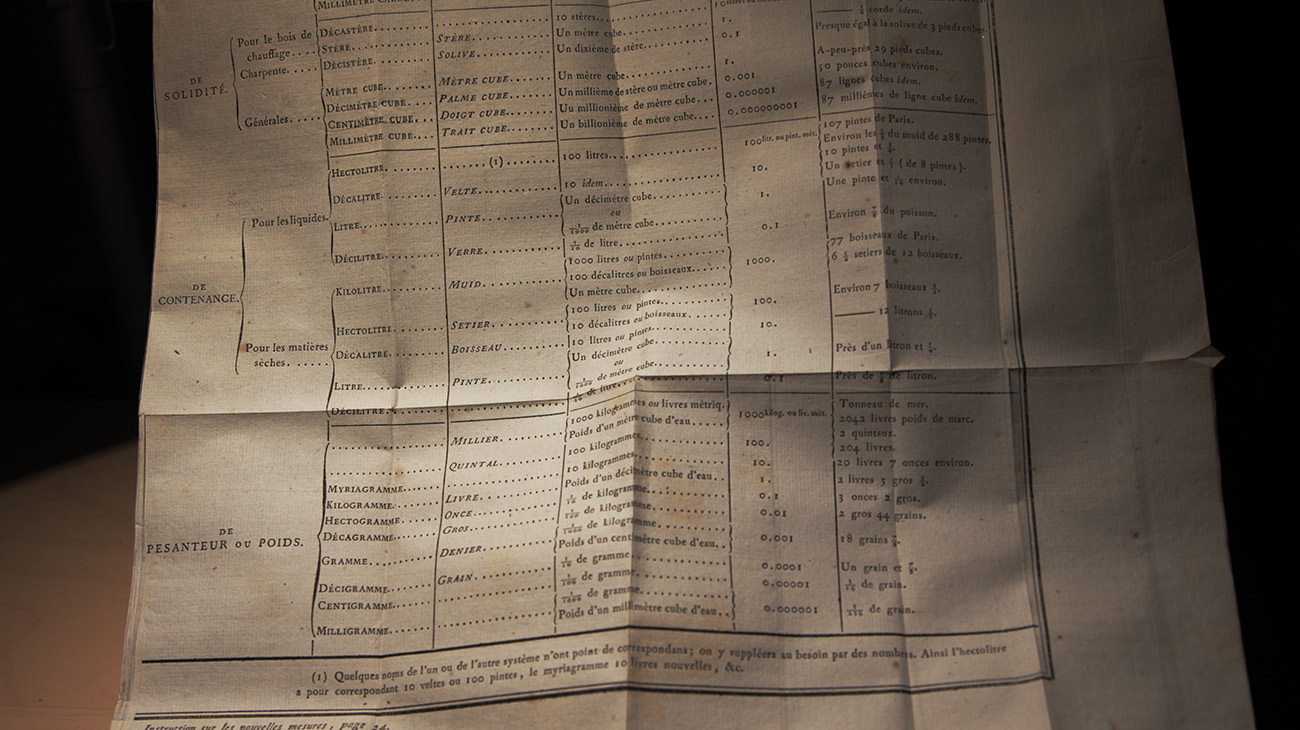 MILLIMÈTRE
10 stères....
1/2 corde idem.
Pour le bois de chauffage.
DÉCASTÈRE.
Un mètre cube.
1.
Presque égal à la solive de 3 pieds cubes.
STÈRE.
STÈRE.
Un dixième de stère.
0.1
Charpente.
DÉCISTÈRE.
SOLIVE.
DE SOLIDITÉ.
Générales.
MÈTRE CUBE.
MÈTRE CUBE.
Un mètre cube.
1.
A-peu-près 29 pieds cubes.
DÉCIMÈTRE CUBE.
PALME CUBE.
Un millième de stère ou mètre cube.
0.001
50 pouces cubes environ.
CENTIMÈTRE CUBE.
DOIGT CUBE.
Un millionième de mètre cube.
0.000001
87 lignes cubes idem.
MILLIMÈTRE CUBE.
TRAIT CUBE.
Un billionième de mètre cube.
0.000000001
87 millièmes de ligne cube idem.
DE CONTENANCE.
Pour les liquides.
HECTOLITRE
(1)
100 litres.
100 lit. ou pint. mét.
107 pintes de Paris.
Environ les de du muid de 288 pintes.
DÉCALITRE.
VELTE.
10 idem.
10.
10 pintes et
Un setier et (de 8 pintes).
LITRE.
PINTE.
Un décimètre cube.
ou
1/1000 de mètre cube.
1.
Une pinte et environ.
DÉCILITRE.
VERRE.
1/10 de litre.
0.1
Environ du poisson.
Pour les matières sèches.
KILOLITRE.
MUID.
1000 litres ou pintes.
100 décalitres ou boisseaux.
Un mètre cube.
1000.
77 boisseaux de Paris.
6 setiers de 12 boisseaux.
HECTOLITRE
SETIER
100 litres ou pintes.
10 décalitres ou boisseaux.
100.
Environ 7 boisseaux
DÉCALITRE.
BOISSEAU.
10 litres ou pintes.
10.
12 litrons
LITRE.
PINTE.
Un décimètre cube.
ou
1/1000 de mètre cube.
1.
Près d'un litron et
DÉCILITRE.
1/10 de litre.
0.1
Près de de litron.
DE PESANTEUR OU POIDS.
MILLIER.
1000 kilogrammes ou livres métriq.
Poids d'un mètre cube d'eau.
1000 kilog. ou liv. mét.
Tonneau de mer.
2042 livres poids de marc.
QUINTAL.
100 kilogrammes.
100.
2 quintaux.
204 livres.
MYRIAGRAMME.
10 kilogrammes.
10.
20 livres 7 onces environ.
KILOGRAMME.
LIVRE.
Poids d'un décimètre cube d'eau.
1.
2 livres 5 gros
HECTOGRAMME.
ONCE.
1/10 de kilogramme.
0.1
3 onces 2 gros.
DÉCAGRAMME.
GROS.
1/100 de kilogramme.
0.01
2 gros 44 grains.
GRAMME.
DENIER.
1/1000 de kilogramme.
Poids d'un centimètre cube d'eau.
0.001
18 grains
DÉCIGRAMME.
GRAIN.
1/10 de gramme.
0.0001
Un grain et
CENTIGRAMME.
1/100 de gramme.
0.00001
de grain.
MILLIGRAMME.
1/1000 de gramme.
Poids d'un millimètre cube d'eau.
0.000001
de grain.
(1) Quelques noms de l'un ou de l'autre système n'ont point de correspondans; on y suppléera au besoin par des nombres. Ainsi l'hectolitre
a pour correspondant 10 veltes ou 100 pintes, le myriagramme 10 livres nouvelles, &c.
Instruction sur les nouvelles mesures, page 24.